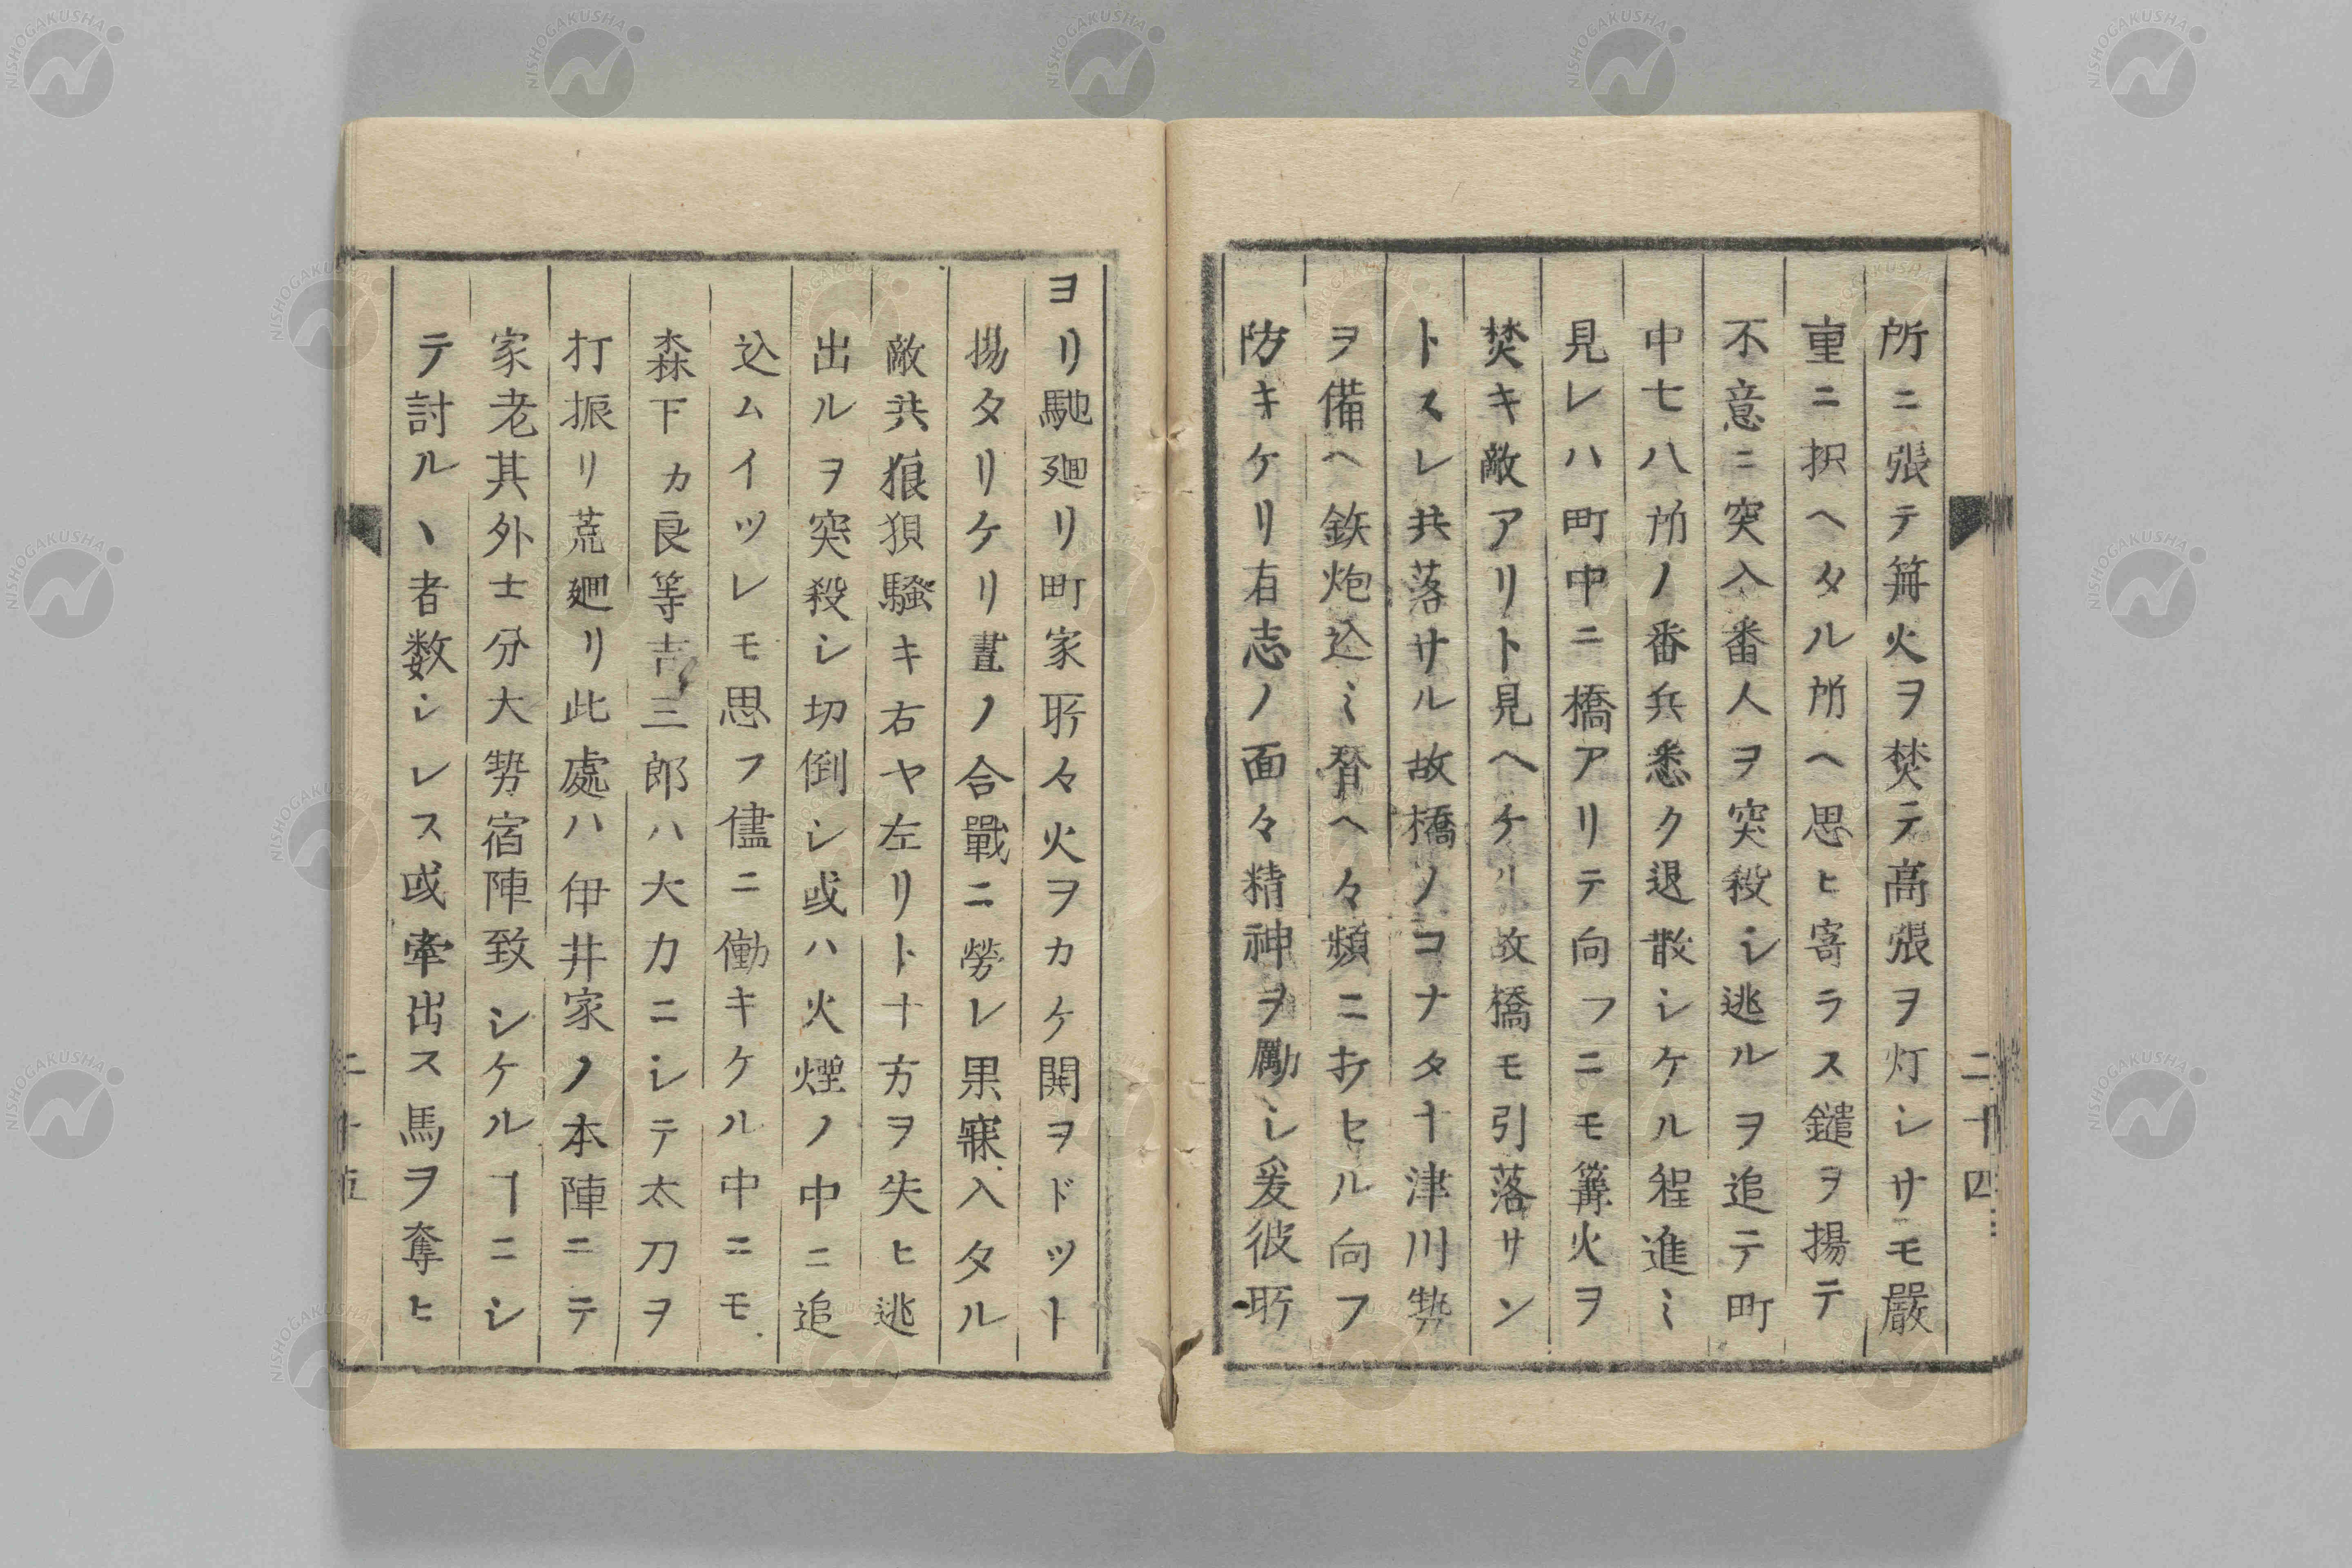 所ニ張テ火ヲ焚テ高張ヲ灯シサモ嚴
重ニヘタル所ヘ思ヒ寄ラス鑓ヲ揚テ
不意ニ突入番人ヲ突殺シ逃ルヲ追テ町
中七八所ノ番兵悉ク退散シケル程進ミ
見レハ町中ニ橋アリテ向フニモ篝火ヲ
焚キ敵アリト見ヘケル故橋モ引落サン
トスレ共落サル故橋ノコナタ十津川勢
ヲ備ヘ鉄炮込ミ替ヘ々頻ニ打セル向フ
防キケリ有志ノ面々精神ヲ勵シ爰彼所
二十四
ヨリ馳廻リ町家所々火ヲカケ開ヲドット
揚タリケリ晝ノ合戰ニ勞レ果寐入タル
敵共狼狽騒キ右ヤ左リト十方ヲ失ヒ逃
出ルヲ突殺シ切倒シ或ハ火煙ノ中ニ追
込ムイツレモ思フ儘ニ働キケル中ニモ
森下カ良等吉三郎ハ大力ニシテ太刀ヲ
打振リ荒廻リ此處ハ伊井家ノ本陣ニテ
家老其外士分大勢宿陣致シケルヿニシ
テ討ルヽ者数シレス或牽出ス馬ヲ奪ヒ
二十五
NISHOGAKUSHA